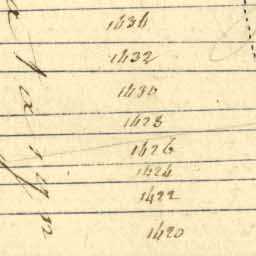 1434
1432
1430
1428
1426
1424
1422
1420